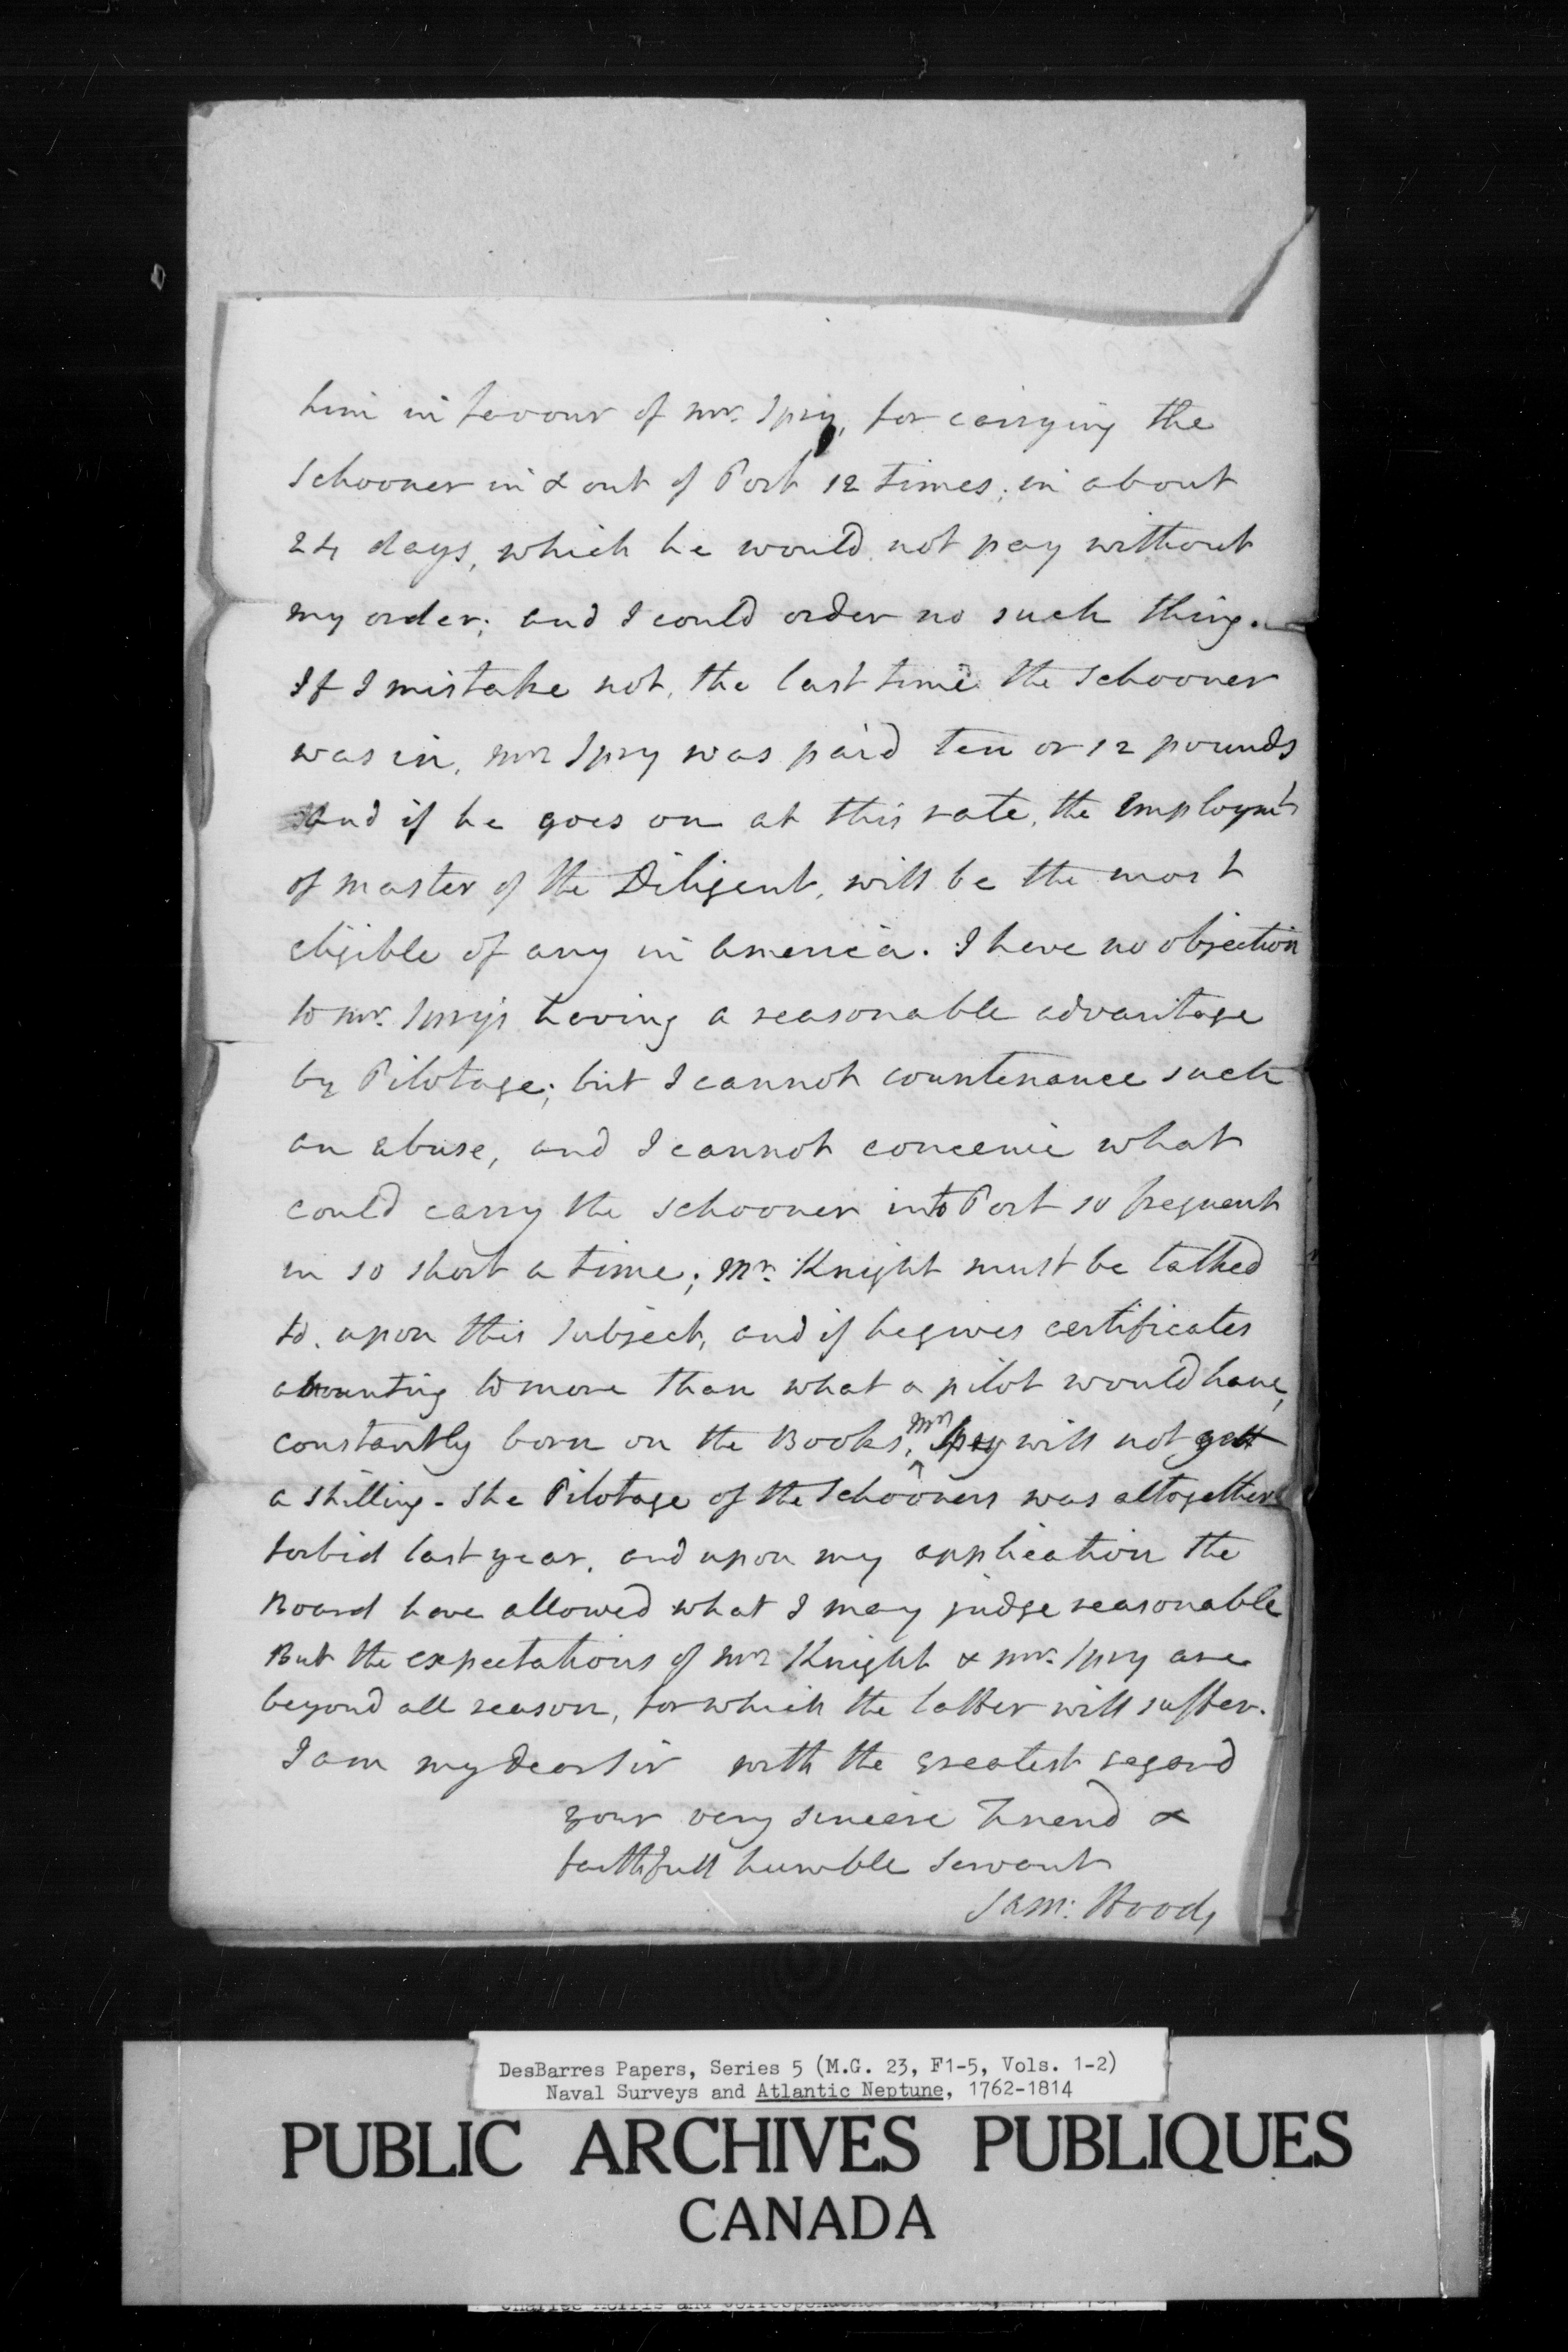 him in favour of Mr. Spry, for carrying the
Schooner in & out of Port 12 times, in about
24 days, which he would not pay without
my order; and I could order no such thing.
If I mistake not, the last time the Schooner
was in, Mr Spry was paid ten or 12 pounds
And if he goes on at this rate, the Employmt
of Master of the Diligent, will be the most
eligible of any in America. I have no objection
to Mr. Spry's having a reasonable advantage
by Pilotage; but I cannot countenance such
an abuse, and I cannot conceive what
could carry the Schooner into Port so frequent
in so short a time; Mr. Knight must be talked
to, upon this subject, and if he gives certificates
amounting to more than what a pilot would have,
constantly born on the Books, Mr Spry will not gett
a shilling. The Pilotage of the Schooners was altogether
forbid last year, and upon my application the
Board have allowed what I may judge reasonable
But the expectations of Mr Knight & Mr. Spry are
beyond all reason, for which the latter will suffer.
I am my dear Sir with the greatest regard
your very sincere Friend &
faithfull humble Servant
Sam: Hood
DesBarres Papers, Series 5 (M.G. 23, F1-5, Vols. 1-2)
Naval Surveys and Atlantic Neptune, 1762-1814
PUBLIC ARCHIVES PUBLIQUES
CANADA